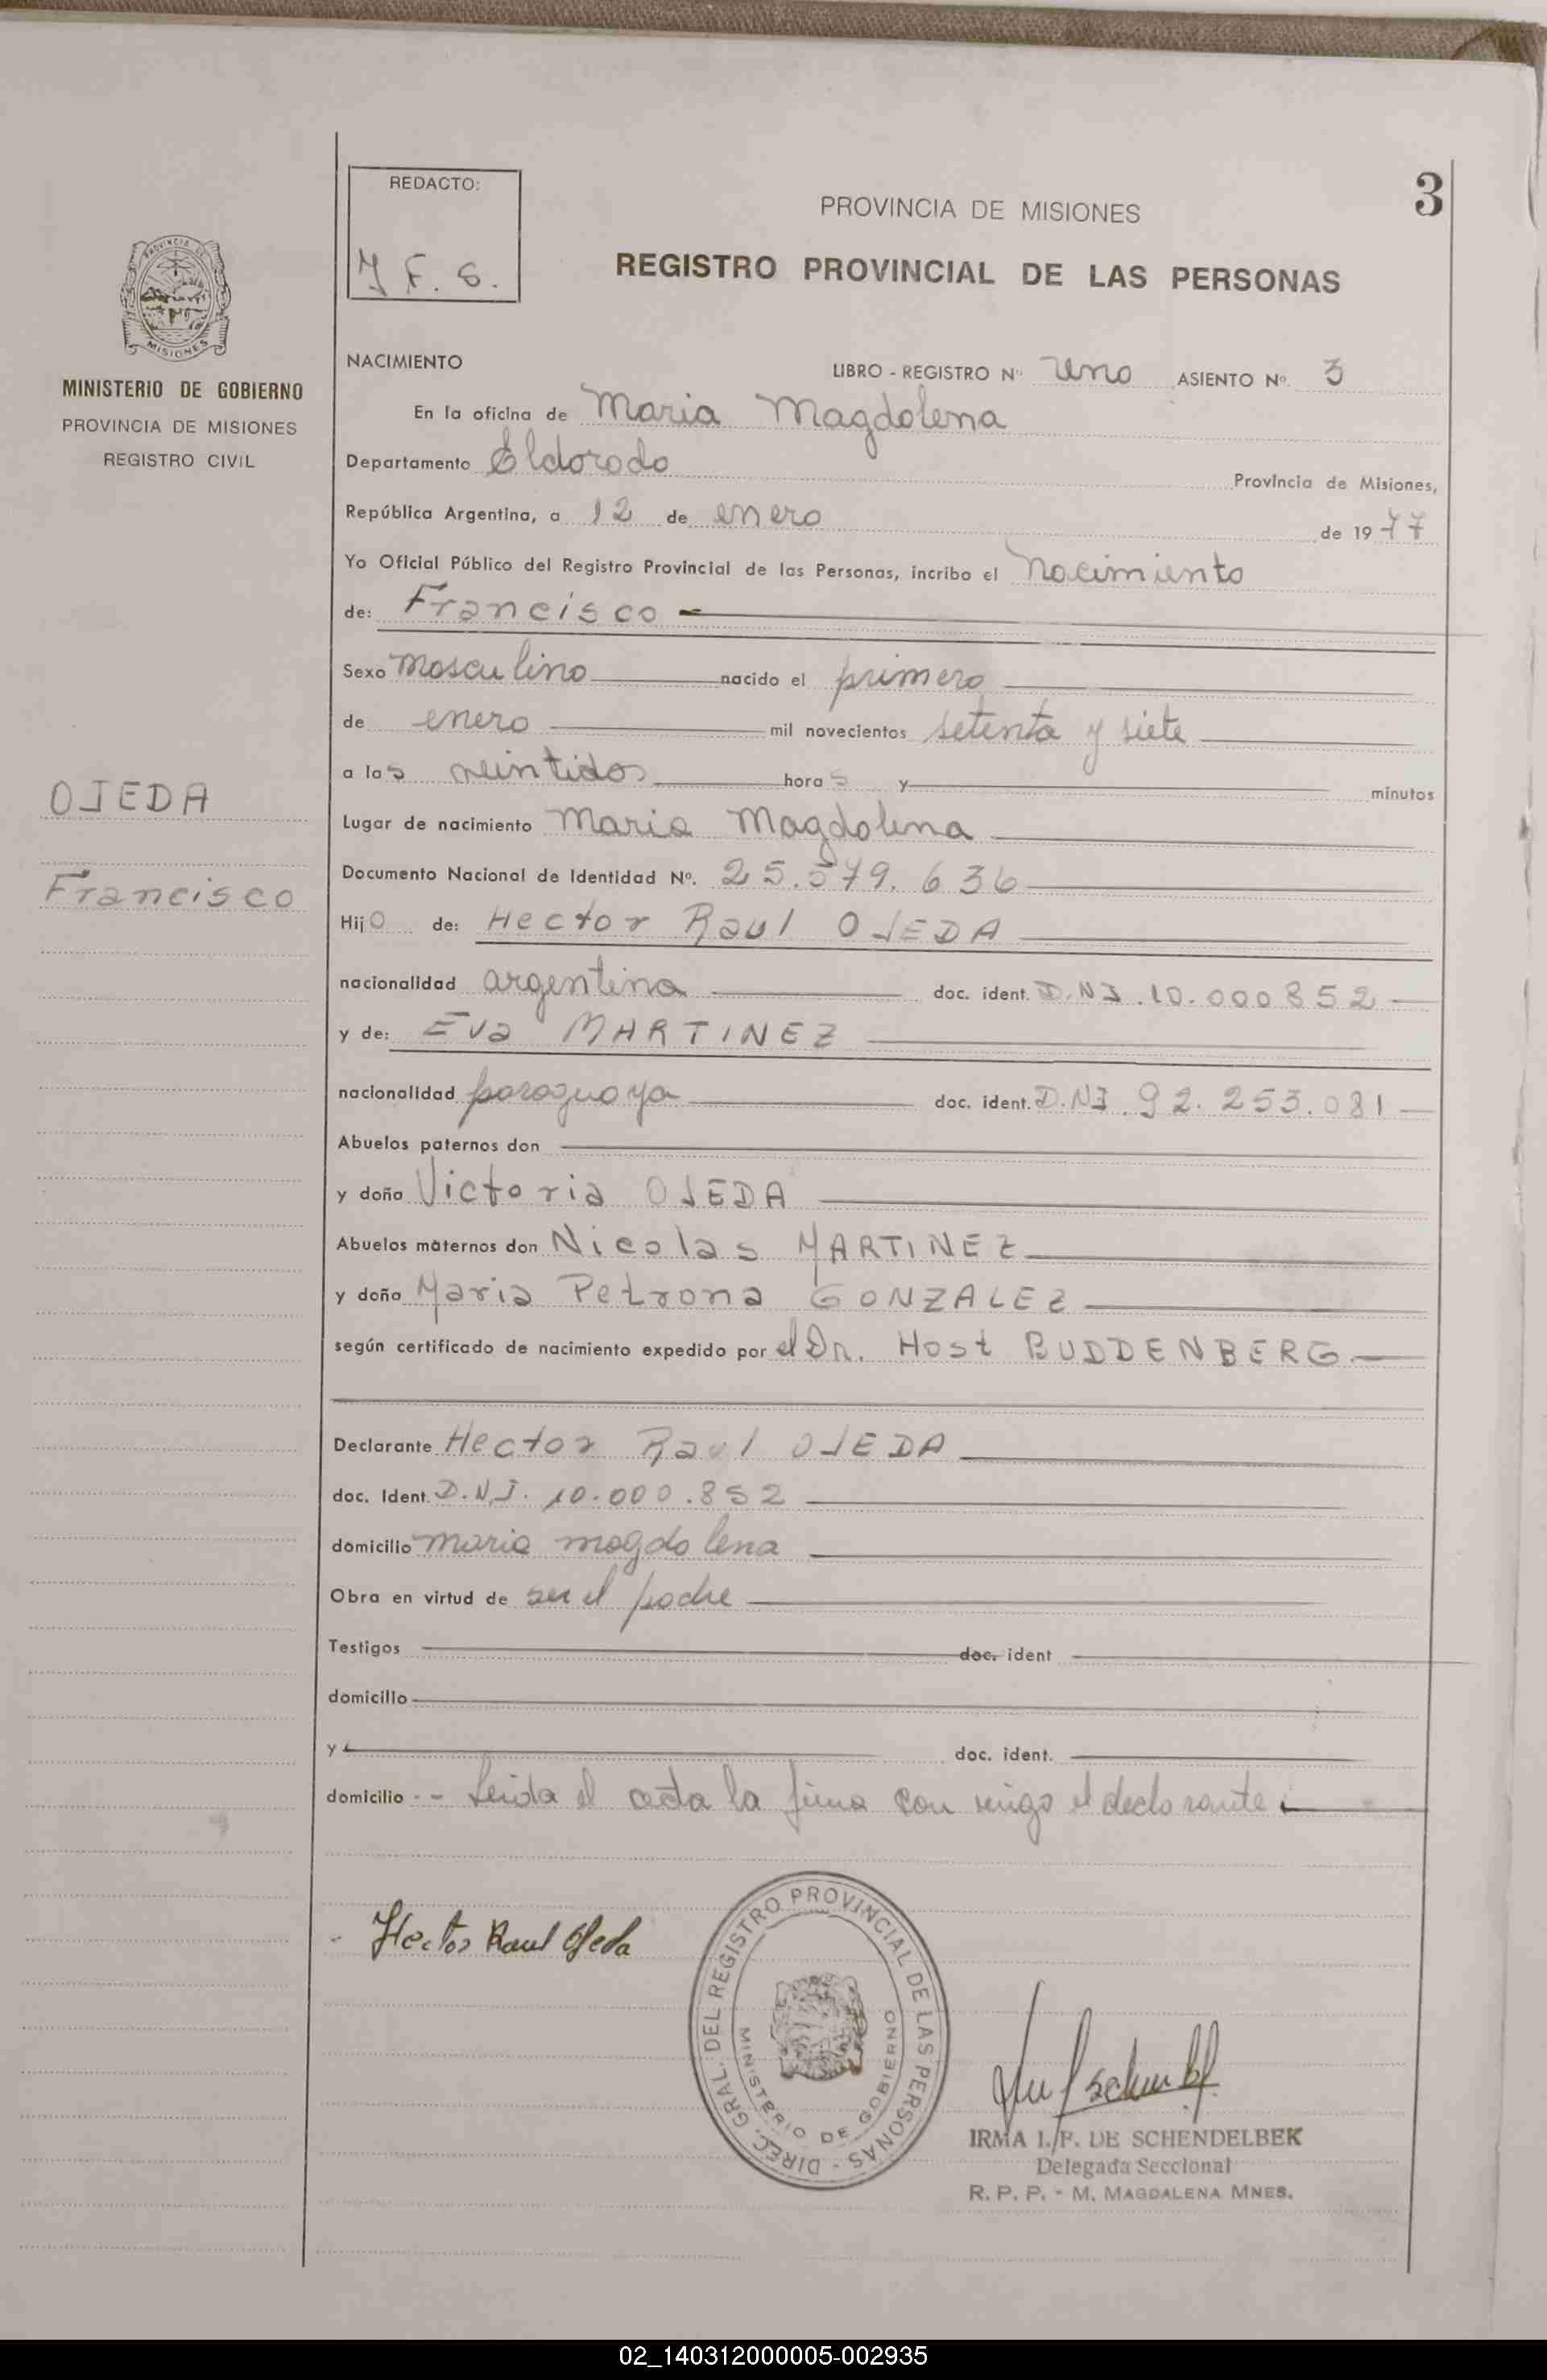 3
REDACTO:
PROVINCIA DE MISIONES
REGISTRO PROVINCIAL DE LAS PERSONAS
PROVINCIA DE
MISIONES
MINISTERIO DE GOBIERNO
PROVINCIA DE MISIONES
REGISTRO CIVIL
NACIMIENTO LIBRO - REGISTRO Nº Uno ASIENTO Nº 3
En la oficina de Maria Magdalena
Departamento Eldorado Provincia de Misiones,
República Argentina, a 12 de enero de 1977
Yo Oficial Público del Registro Provincial de las Personas, incribo el Nacimiento
de: Francisco
Sexo Masculino nacido el primero
de enero mil novecientos setenta y siete
a las veintidos horas y minutos
OJEDA
Francisco
Lugar de nacimiento Maria Magdalena
Documento Nacional de Identidad Nº. 25.579.636
Hijo de: Hector Raul OJEDA
nacionalidad argentina doc. ident. D.NI.10.000852
y de: Eva MARTINEZ
nacionalidad paraguaya doc. ident. D.NI.92.253.081
Abuelos paternos don
y doña Victoria OJEDA
Abuelos maternos don Nicolas MARTINEZ
y doña Maria Petrona GONZALEZ
según certificado de nacimiento expedido por el Dr. Host BUDDENBERG
Declarante Hector Raul OJEDA
doc. Ident. D.N.I. 10.000.852
domicilio Maria magdalena
Obra en virtud de ser el padre
Testigos doc. ident
domicilio
y doc. ident.
domicilio -- Leida el acta la firma con migo el declarante
Hector Raul Ojeda
DIREC. GRAL. DEL REGISTRO PROVINCIAL DE LAS PERSONAS -
MINISTERIO DE GOBIERNO
IRMA I. F. DE SCHENDELBEK
Delegada Seccional
R. P. P. - M. MAGDALENA MNES.
02_140312000005-002935